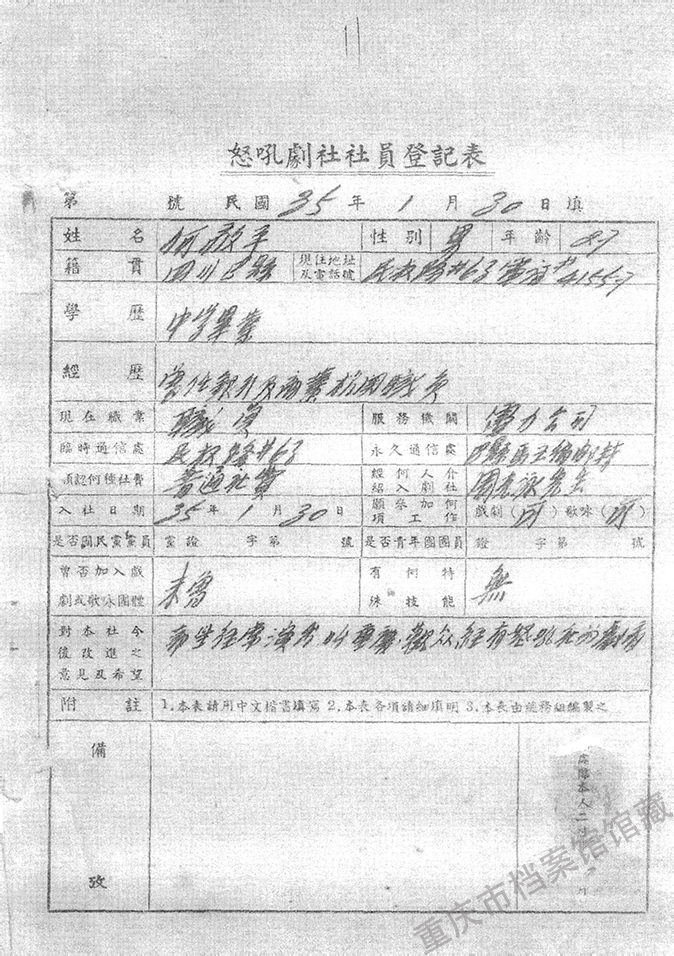 11
怒吼劇社社員登記表
第 號 民國 35 年 1 月 30 日填
姓名 何敬平 性別 男 年齡 27
籍貫 四川巴縣 現住地址及電話號 民权路#63 電话# 41557
學歷 中学畢業
經歷 曾任銀行及商業机関職員
現在職業 職員 服務機關 電力公司
臨時通信處 民权路#63 永久通信處 巴縣馬王
須認何種社費 普通社費 經何人介紹入劇社 周 先生
入社日期 35 年 1 月 30 日 願參加何項工作 戲劇(可)歌咏(可)
是否國民黨黨員 黨證 字第 號 是否青年團團員 證 字第 號
曾否加入戲劇或歌咏團體 未曾 有何特殊技能 無
對本社今後改進之意見及希望 希望經常演出 觀众 有 的劇看
附註 1.本表請用中文楷書填寫 2.本表各項請細填明 3.本表由總務組編製之
備攷
本人二寸
重庆市档案馆馆藏